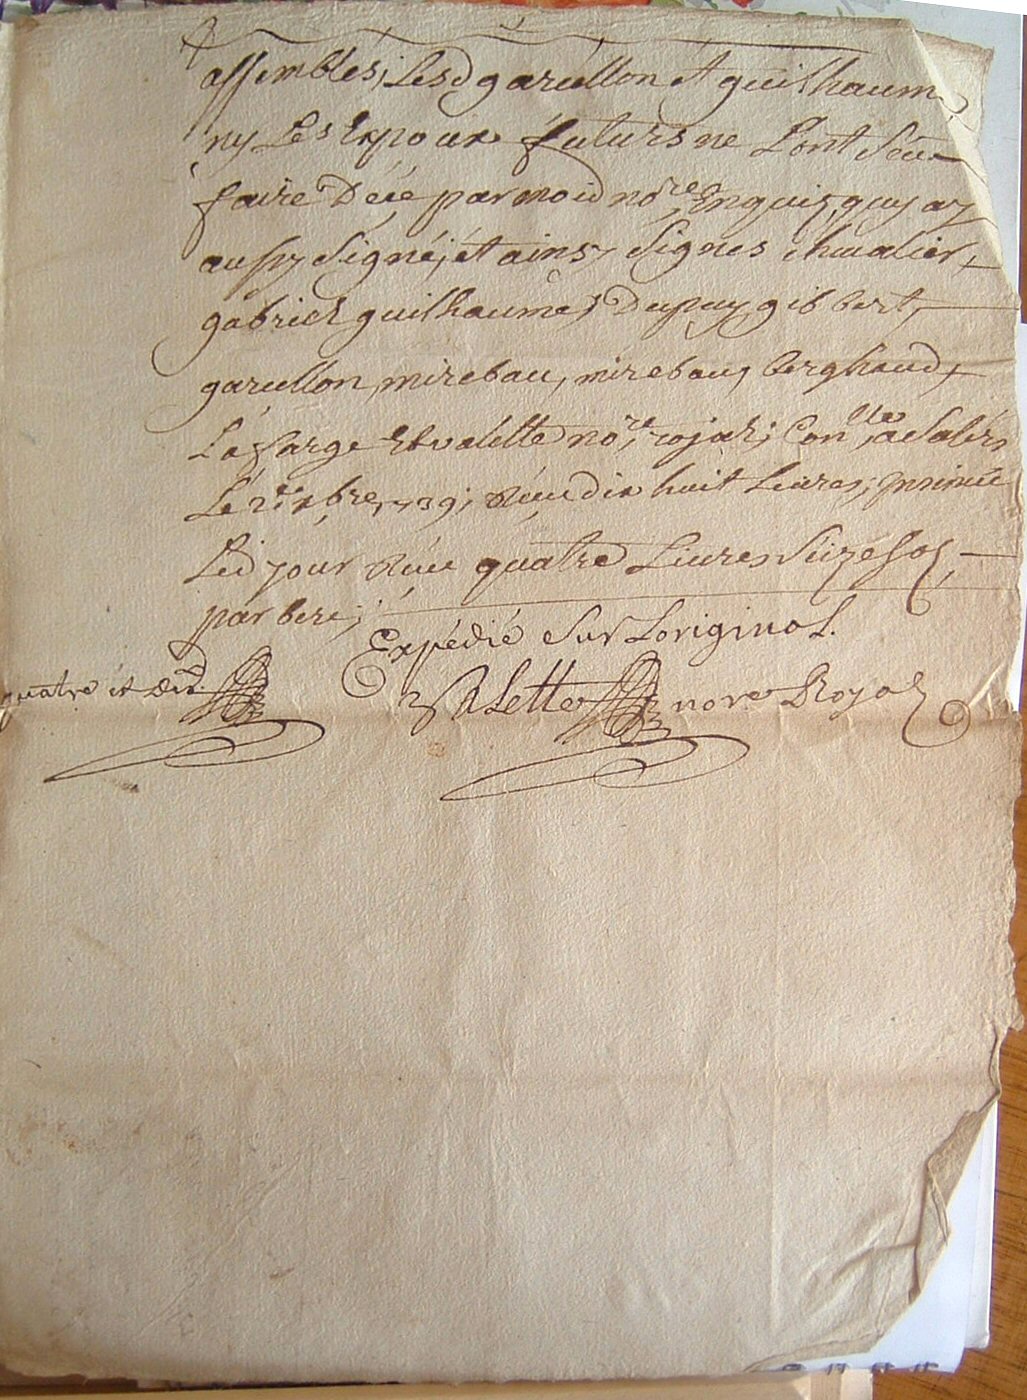 assemblés, Lesd garullon et guilhaum
ny Les Expoux futurs ne Lont Sceu
faire De ce par moid nore Enquis, quy ay
aussy Signé, et ainsy Signes chevalier,
gabriel guilhaume, Dupuy, gibbert,
garullon, mirebau, mirebau, berghaud,
Lafarge Et valette nore, rojal; Conlle, a Salers
Le xbre, 1739; Reçu dix huit Livres;
Led jour Reçu quatre Livres Seize sol,
par bere;
Expédié Sur Loriginal.
quatre et
Valette nore Royal